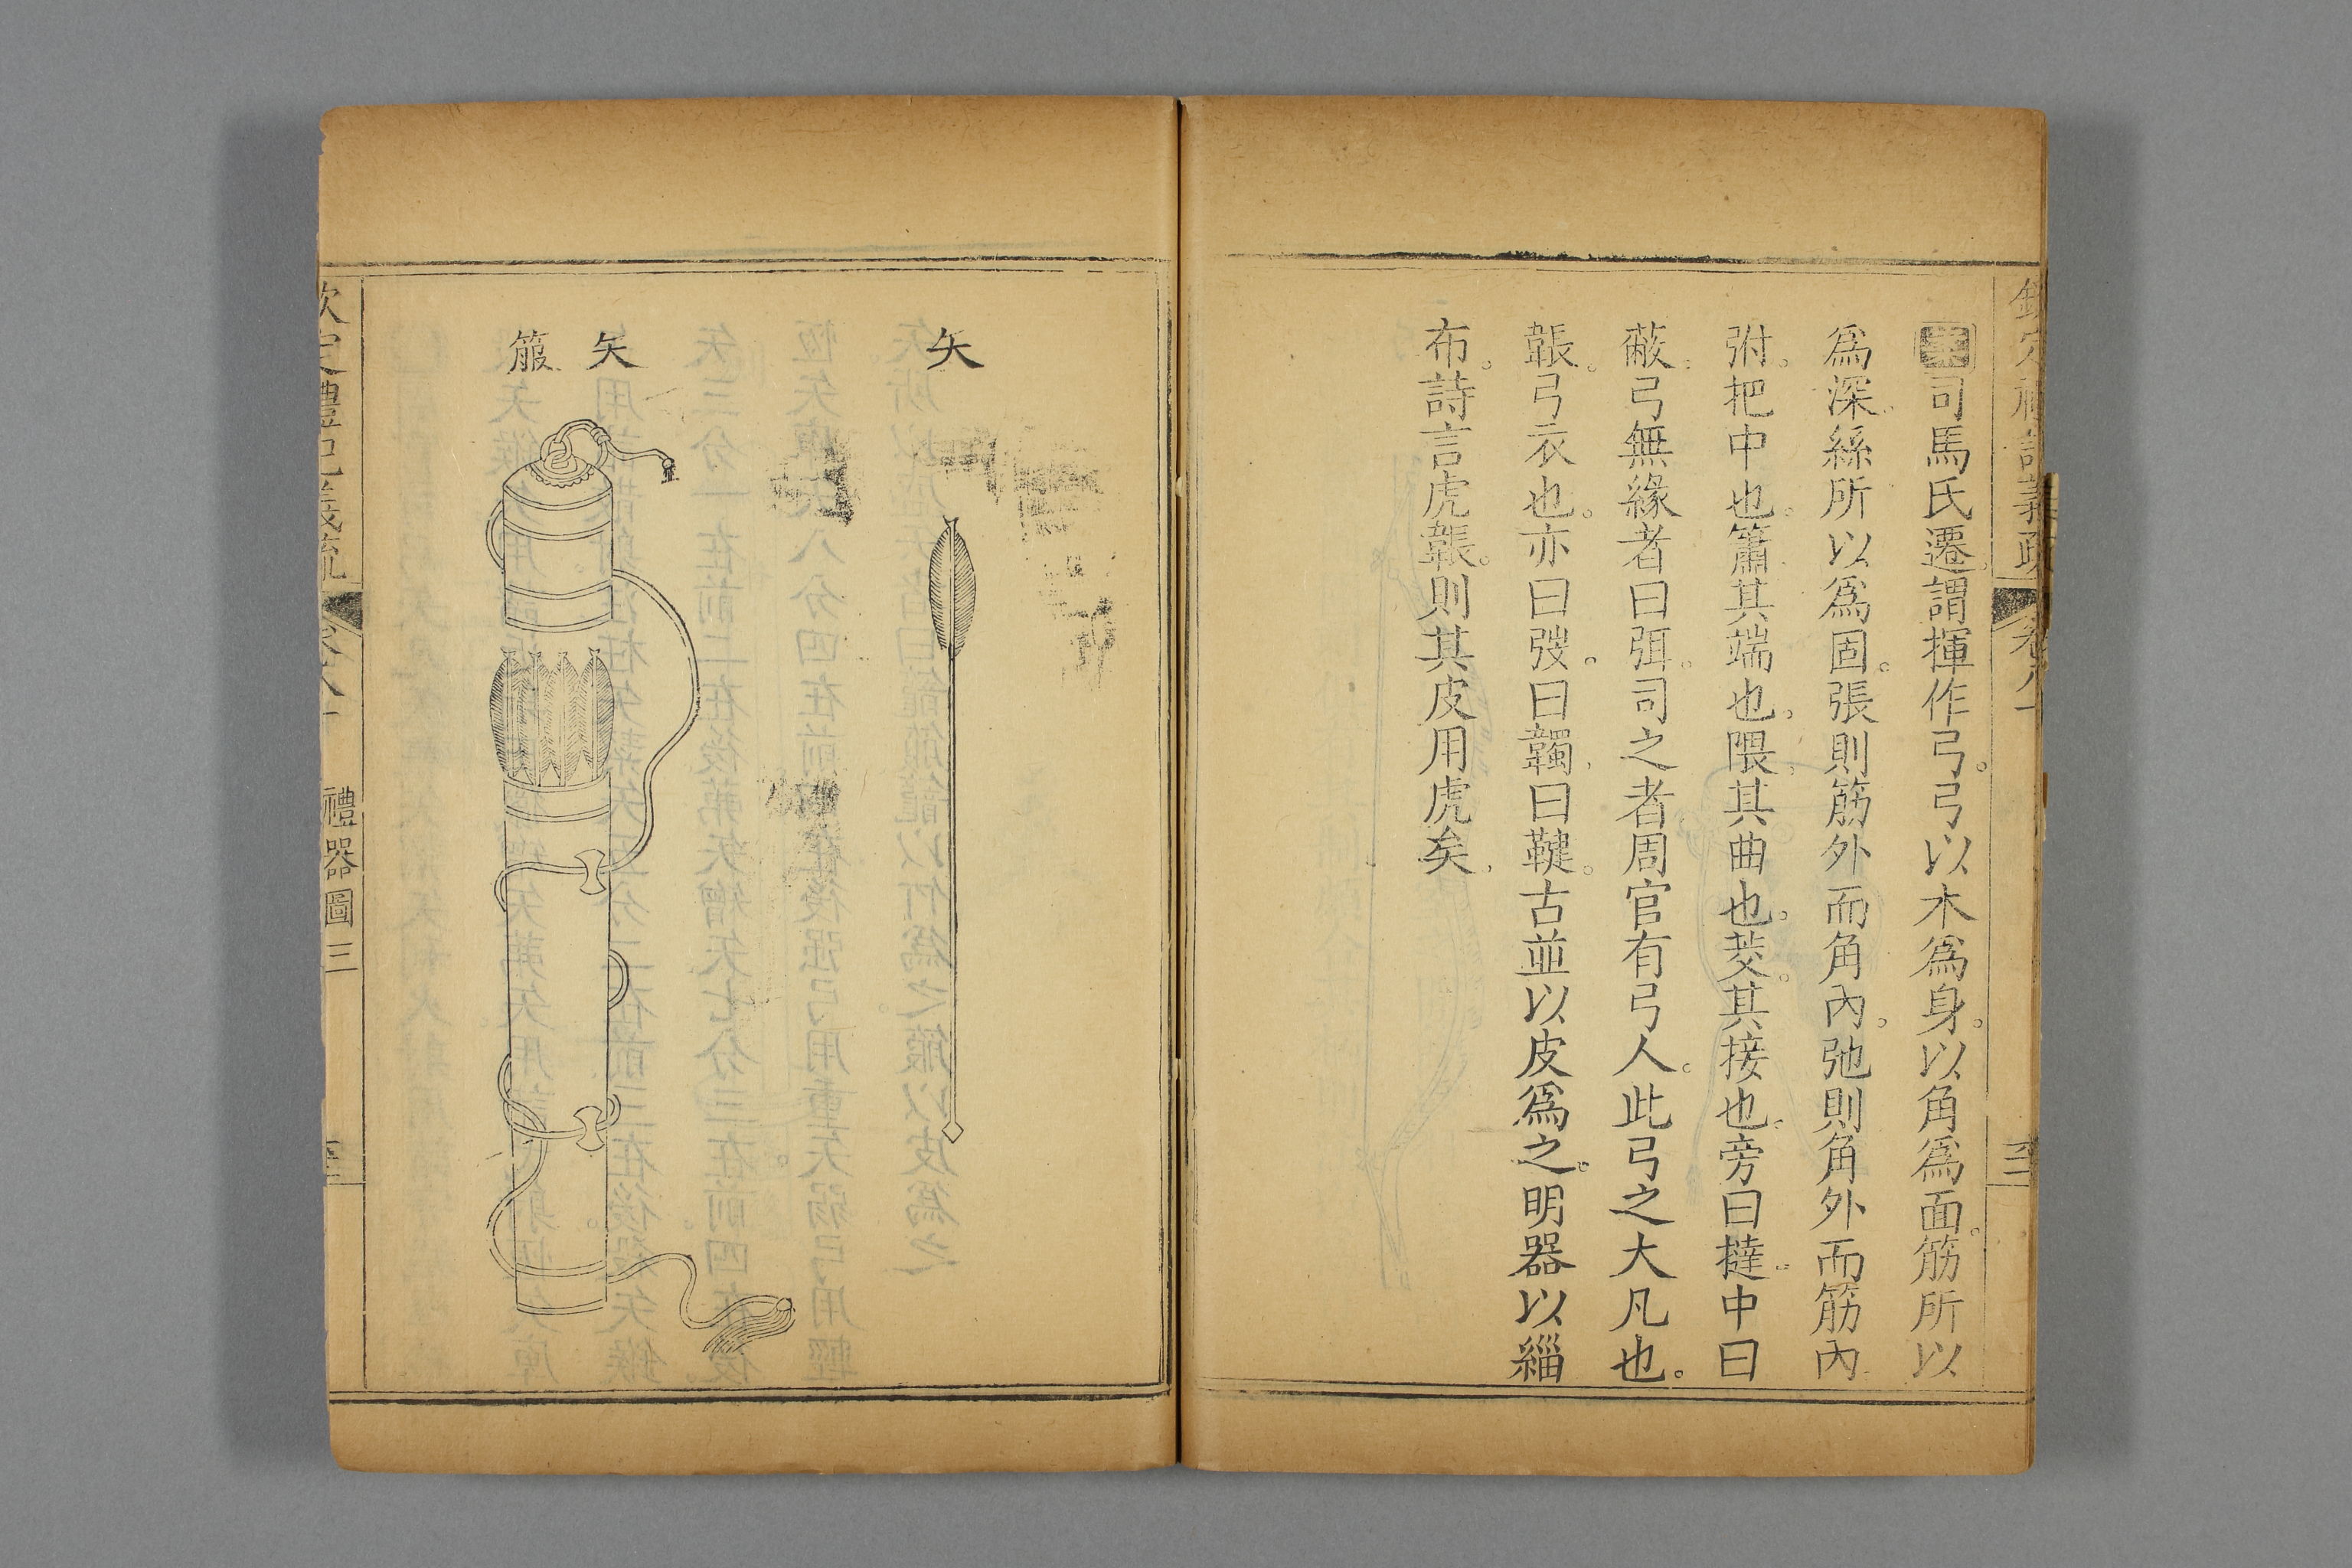 欽定禮記義疏 卷八十
案司馬氏遷謂揮作弓。弓以木爲身。以角爲面。筋所以
爲深。絲所以爲固。張則筋外而角內。弛則角外而筋內
弣。把中也。簫其端也。隈。其曲也。茭。其接也。旁曰㯓。中曰
蔽。弓無緣者曰弭。司之者周官有弓人。此弓之大凡也。
韔。弓衣也。亦曰弢。曰韣。曰鞬。古並以皮爲之。明器以緇
布。詩言虎韔。則其皮用虎矣。
矢
矢
箙
欽定禮記義疏 卷八十 禮器圖三